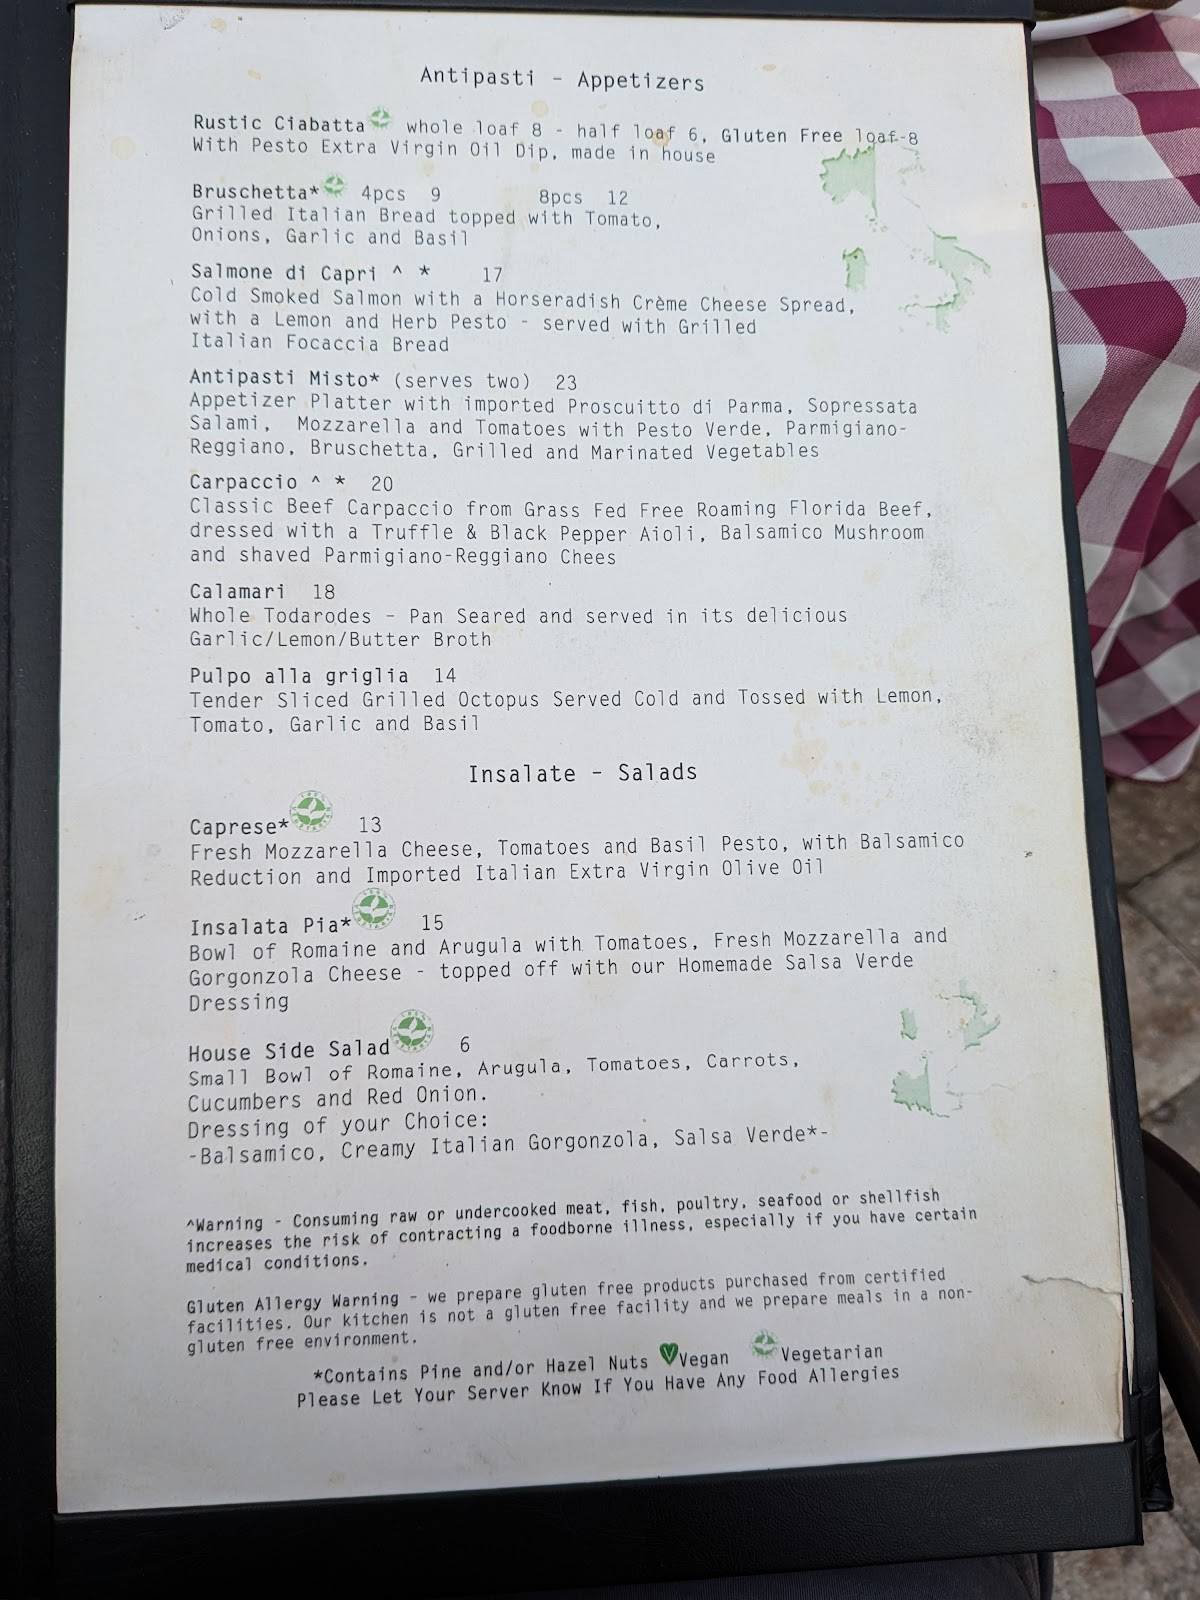 Antipasti - Appetizers
Rustic Ciabatta whole loaf 8 - half loaf 6, Gluten Free loaf-8
With Pesto Extra Virgin Oil Dip, made in house
Bruschetta* 4pcs 9 8pcs 12
Grilled Italian Bread topped with Tomato,
Onions, Garlic and Basil
Salmone di Capri ^ * 17
Cold Smoked Salmon with a Horseradish Crème Cheese Spread,
with a Lemon and Herb Pesto - served with Grilled
Italian Focaccia Bread
Antipasti Misto* (serves two) 23
Appetizer Platter with imported Proscuitto di Parma, Sopressata
Salami, Mozzarella and Tomatoes with Pesto Verde, Parmigiano-
Reggiano, Bruschetta, Grilled and Marinated Vegetables
Carpaccio ^ * 20
Classic Beef Carpaccio from Grass Fed Free Roaming Florida Beef,
dressed with a Truffle & Black Pepper Aioli, Balsamico Mushroom
and shaved Parmigiano-Reggiano Chees
Calamari 18
Whole Todarodes - Pan Seared and served in its delicious
Garlic/Lemon/Butter Broth
Pulpo alla griglia 14
Tender Sliced Grilled Octopus Served Cold and Tossed with Lemon,
Tomato, Garlic and Basil
Insalate - Salads
Caprese* 13
Fresh Mozzarella Cheese, Tomatoes and Basil Pesto, with Balsamico
Reduction and Imported Italian Extra Virgin Olive Oil
Insalata Pia* 15
Bowl of Romaine and Arugula with Tomatoes, Fresh Mozzarella and
Gorgonzola Cheese - topped off with our Homemade Salsa Verde
Dressing
House Side Salad 6
Small Bowl of Romaine, Arugula, Tomatoes, Carrots,
Cucumbers and Red Onion.
Dressing of your Choice:
-Balsamico, Creamy Italian Gorgonzola, Salsa Verde*-
^Warning - Consuming raw or undercooked meat, fish, poultry, seafood or shellfish
increases the risk of contracting a foodborne illness, especially if you have certain
medical conditions.
Gluten Allergy Warning - we prepare gluten free products purchased from certified
facilities. Our kitchen is not a gluten free facility and we prepare meals in a non-
gluten free environment.
*Contains Pine and/or Hazel Nuts V Vegan Vegetarian
Please Let Your Server Know If You Have Any Food Allergies